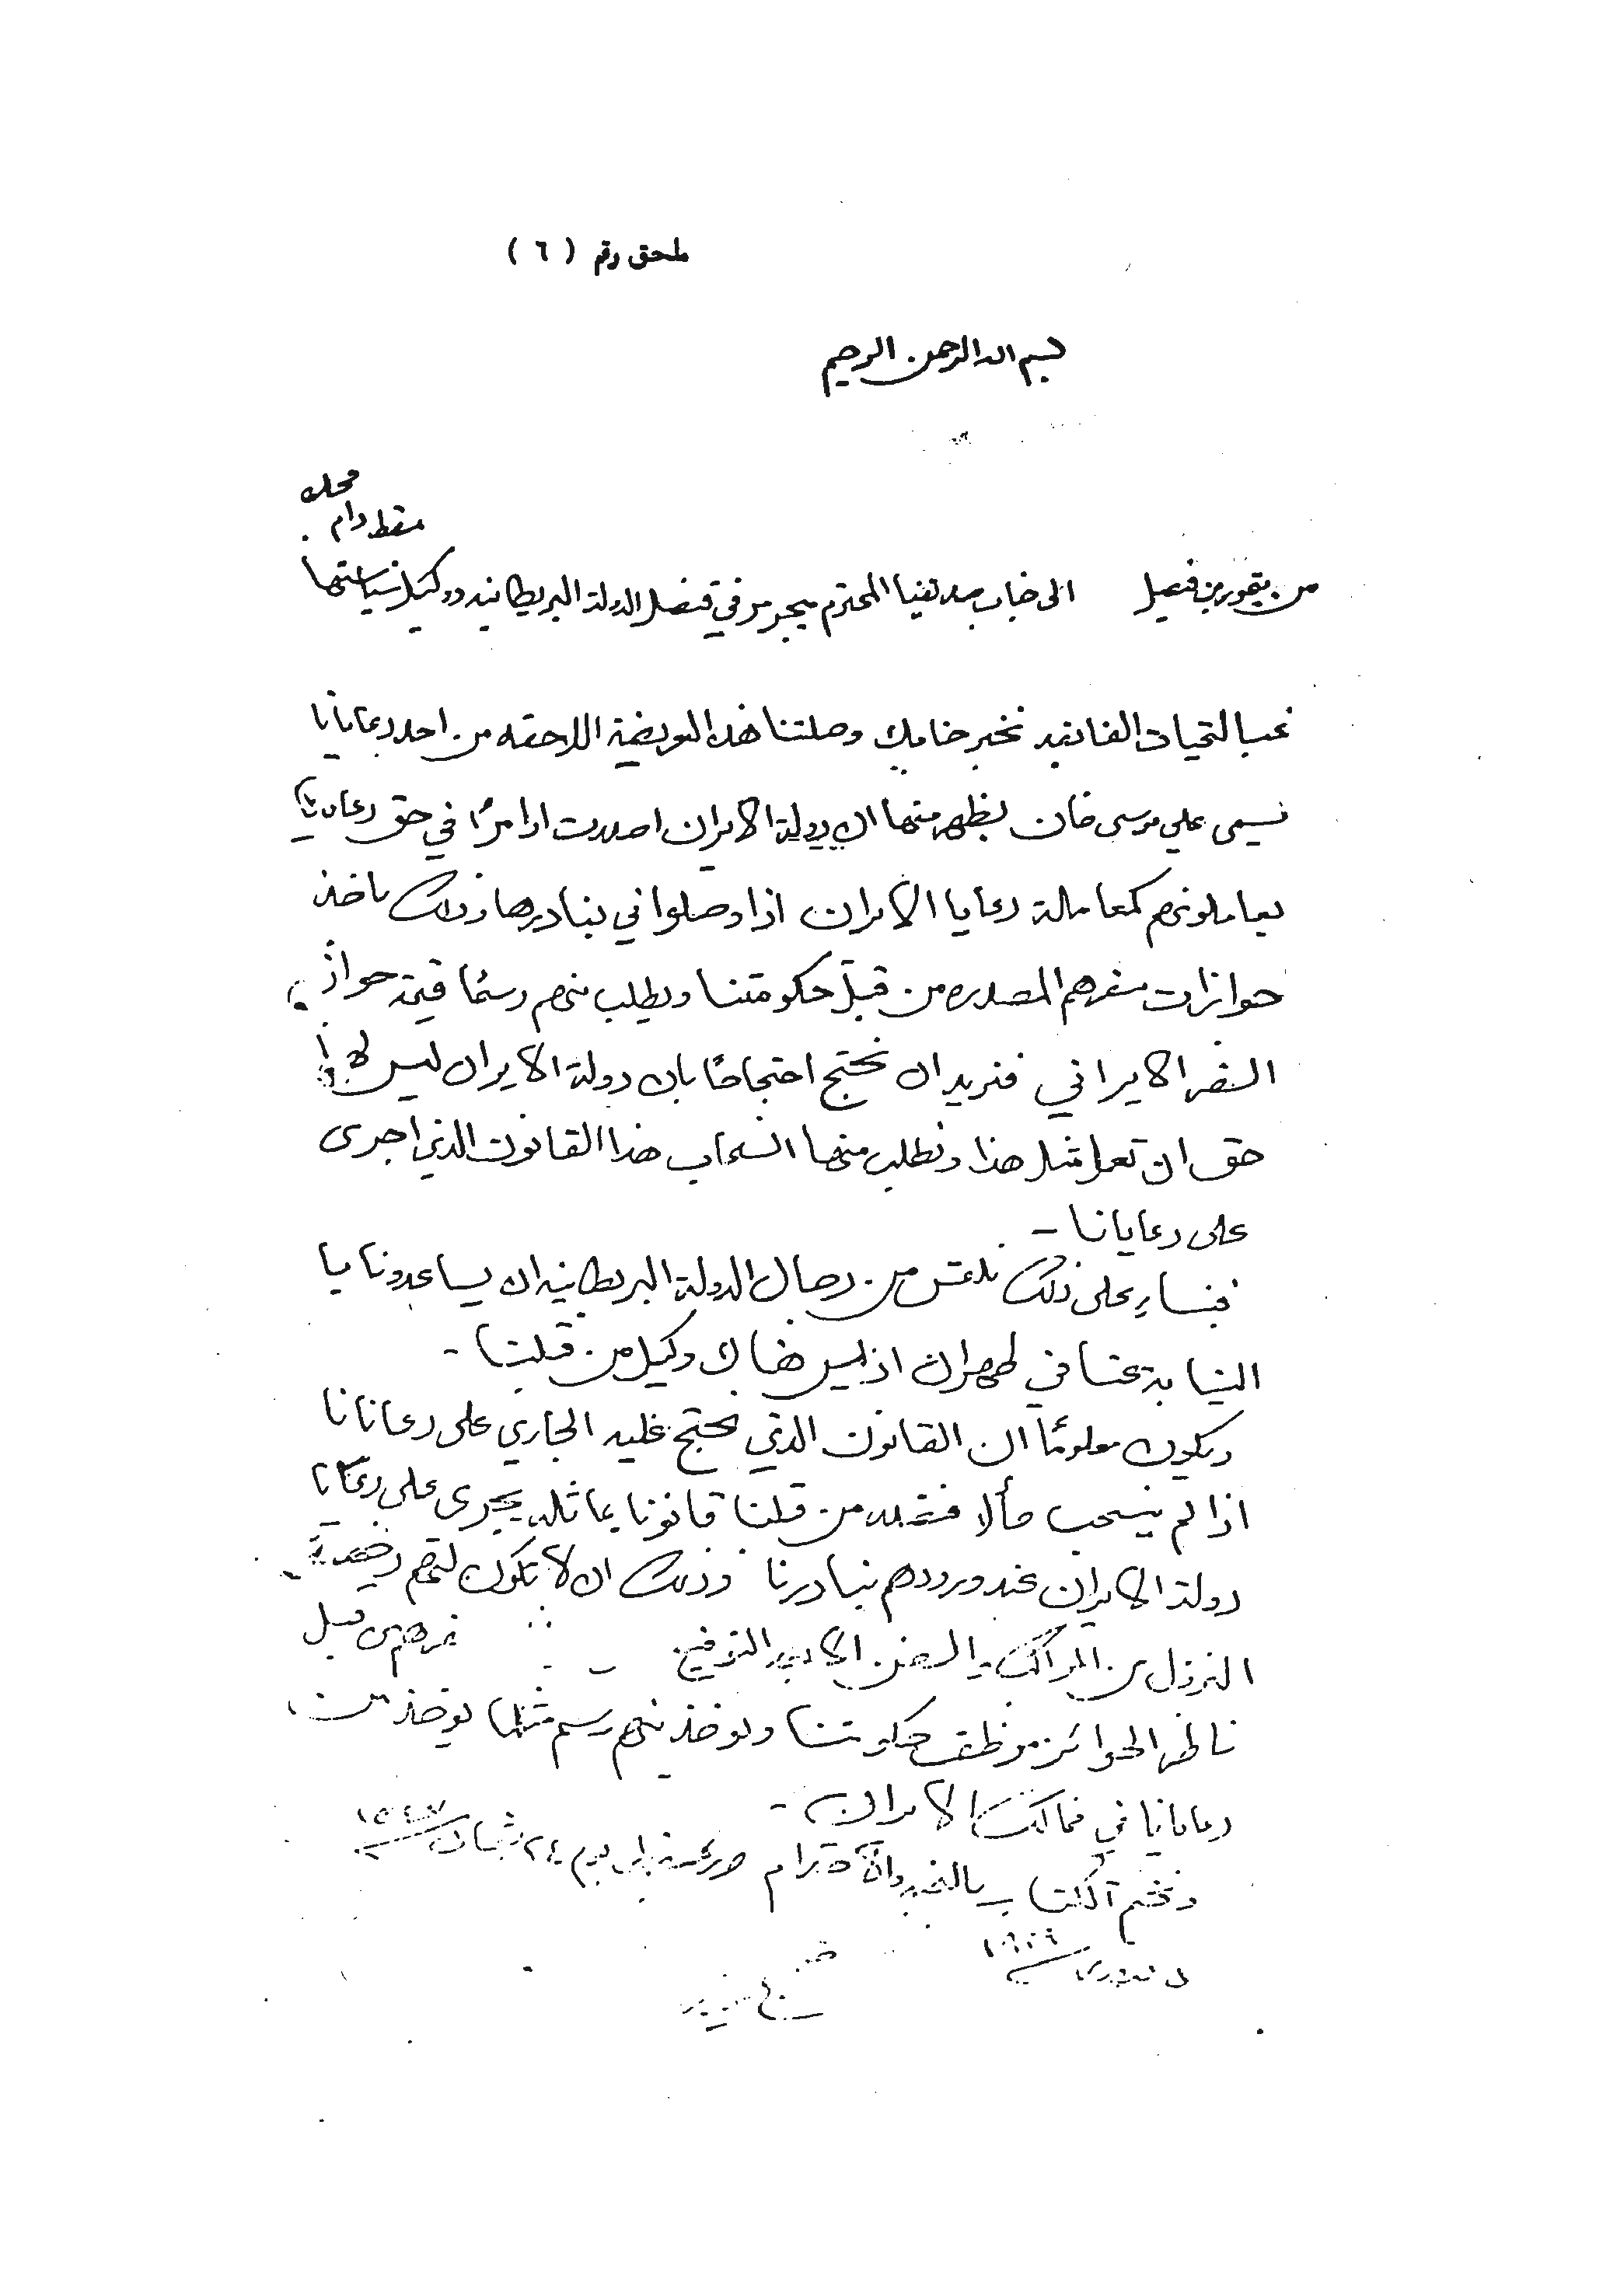 ملحق رقم ( ٦ )
بسم الله الرحمن الرحيم
محله
مسقط دام
من تيمور بن فيصل الى جناب صديقنا المحترم ميجر مرفي قنصل الدولة البريطانيه ووكيل سياستها
غب التحيات الفائقه نخبر جنابك وصلتنا هذه العريضة اللاحقه من احد رعايانا
يسمى علي موسى خان يظهر منها ان دولة الايران اصدرت اوامرًا في حق رعايانا
يعاملونهم كمعاملة رعايا الايران اذا وصلوا في بنادرها وذلك باخذ
جوازات سفرهم المصدره من قبل حكومتنا ويطلب منهم رسمًا قيمة جواز
السفر الايراني فنريد ان نحتج احتجاجًا بان دولة الايران ليس لها
حق ان تعمل مثل هذا ونطلب منها انسحاب هذا القانون الذي اجرى
على رعايانا -
فبناء على ذلك نلتمس من رجال الدولة البريطانيه ان يساعدونا با
النيابة عنا في طهران اذ ليس هناك وكيل من قبلنا -
ويكون معلومًا ان القانون الذي نحتج عليه الجاري على رعايانا
اذا لم ينسحب حألا فنقيد من قبلنا قانونا يماثله يجرى على رعايا
دولة الايران عند ورودهم بنادرنا وذلك ان لا تكون لهم رخصة
النزول من المراكب والسفن الا بعد التوقيع
غرهم من قبل
ناظر الجوائز موظف حكومتنا ويوخذ منهم رسم مثلما يوخذ من
رعايانا في ممالك الايران -
ونختم الكتاب بالخير والاحترام حرر يوم ٢٤ شعبان ١٣٤٧
فبروري ١٩٢٩